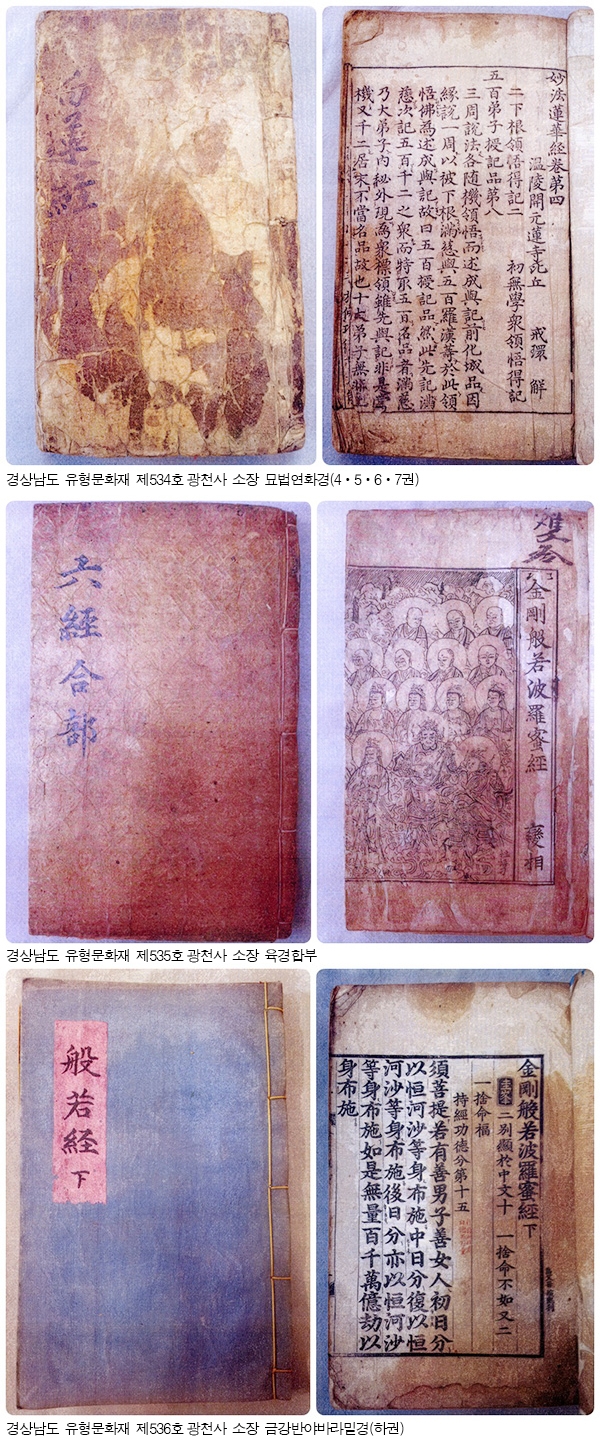 白蓮經
妙法蓮華經卷第四
溫陵開元蓮寺比丘 戒環 解
二下根領悟得記二 初無學衆領悟得記
五百弟子授記品第八
三周說法各随機領悟而述成與記前化城品因
緣說一周以被下根滿慈與五百羅漢等於此領
悟佛為述成與記故曰五百授記品然此先記滿
慈次記五百千二之衆而特取五百名品者滿慈
乃大弟子內秘外現為衆標領雖先與記非是當
機又千二居末不當名品故也十大弟子無非
경상남도 유형문화재 제534호 광천사 소장 묘법연화경(4·5·6·7권)
六經合部
金剛般若波羅蜜經 變相
경상남도 유형문화재 제535호 광천사 소장 육경합부
般若經 下
金剛般若波羅蜜經 下
圭峯 二别顯於中文十 一捨命不如又二
一捨命福
持經功德分第十五
須菩提若有善男子善女人初日分
以恒河沙等身布施中日分復以恒
河沙等身布施後日分亦以恒河沙
等身布施如是無量百千萬億劫以
身布施
경상남도 유형문화재 제536호 광천사 소장 금강반야바라밀경(하권)